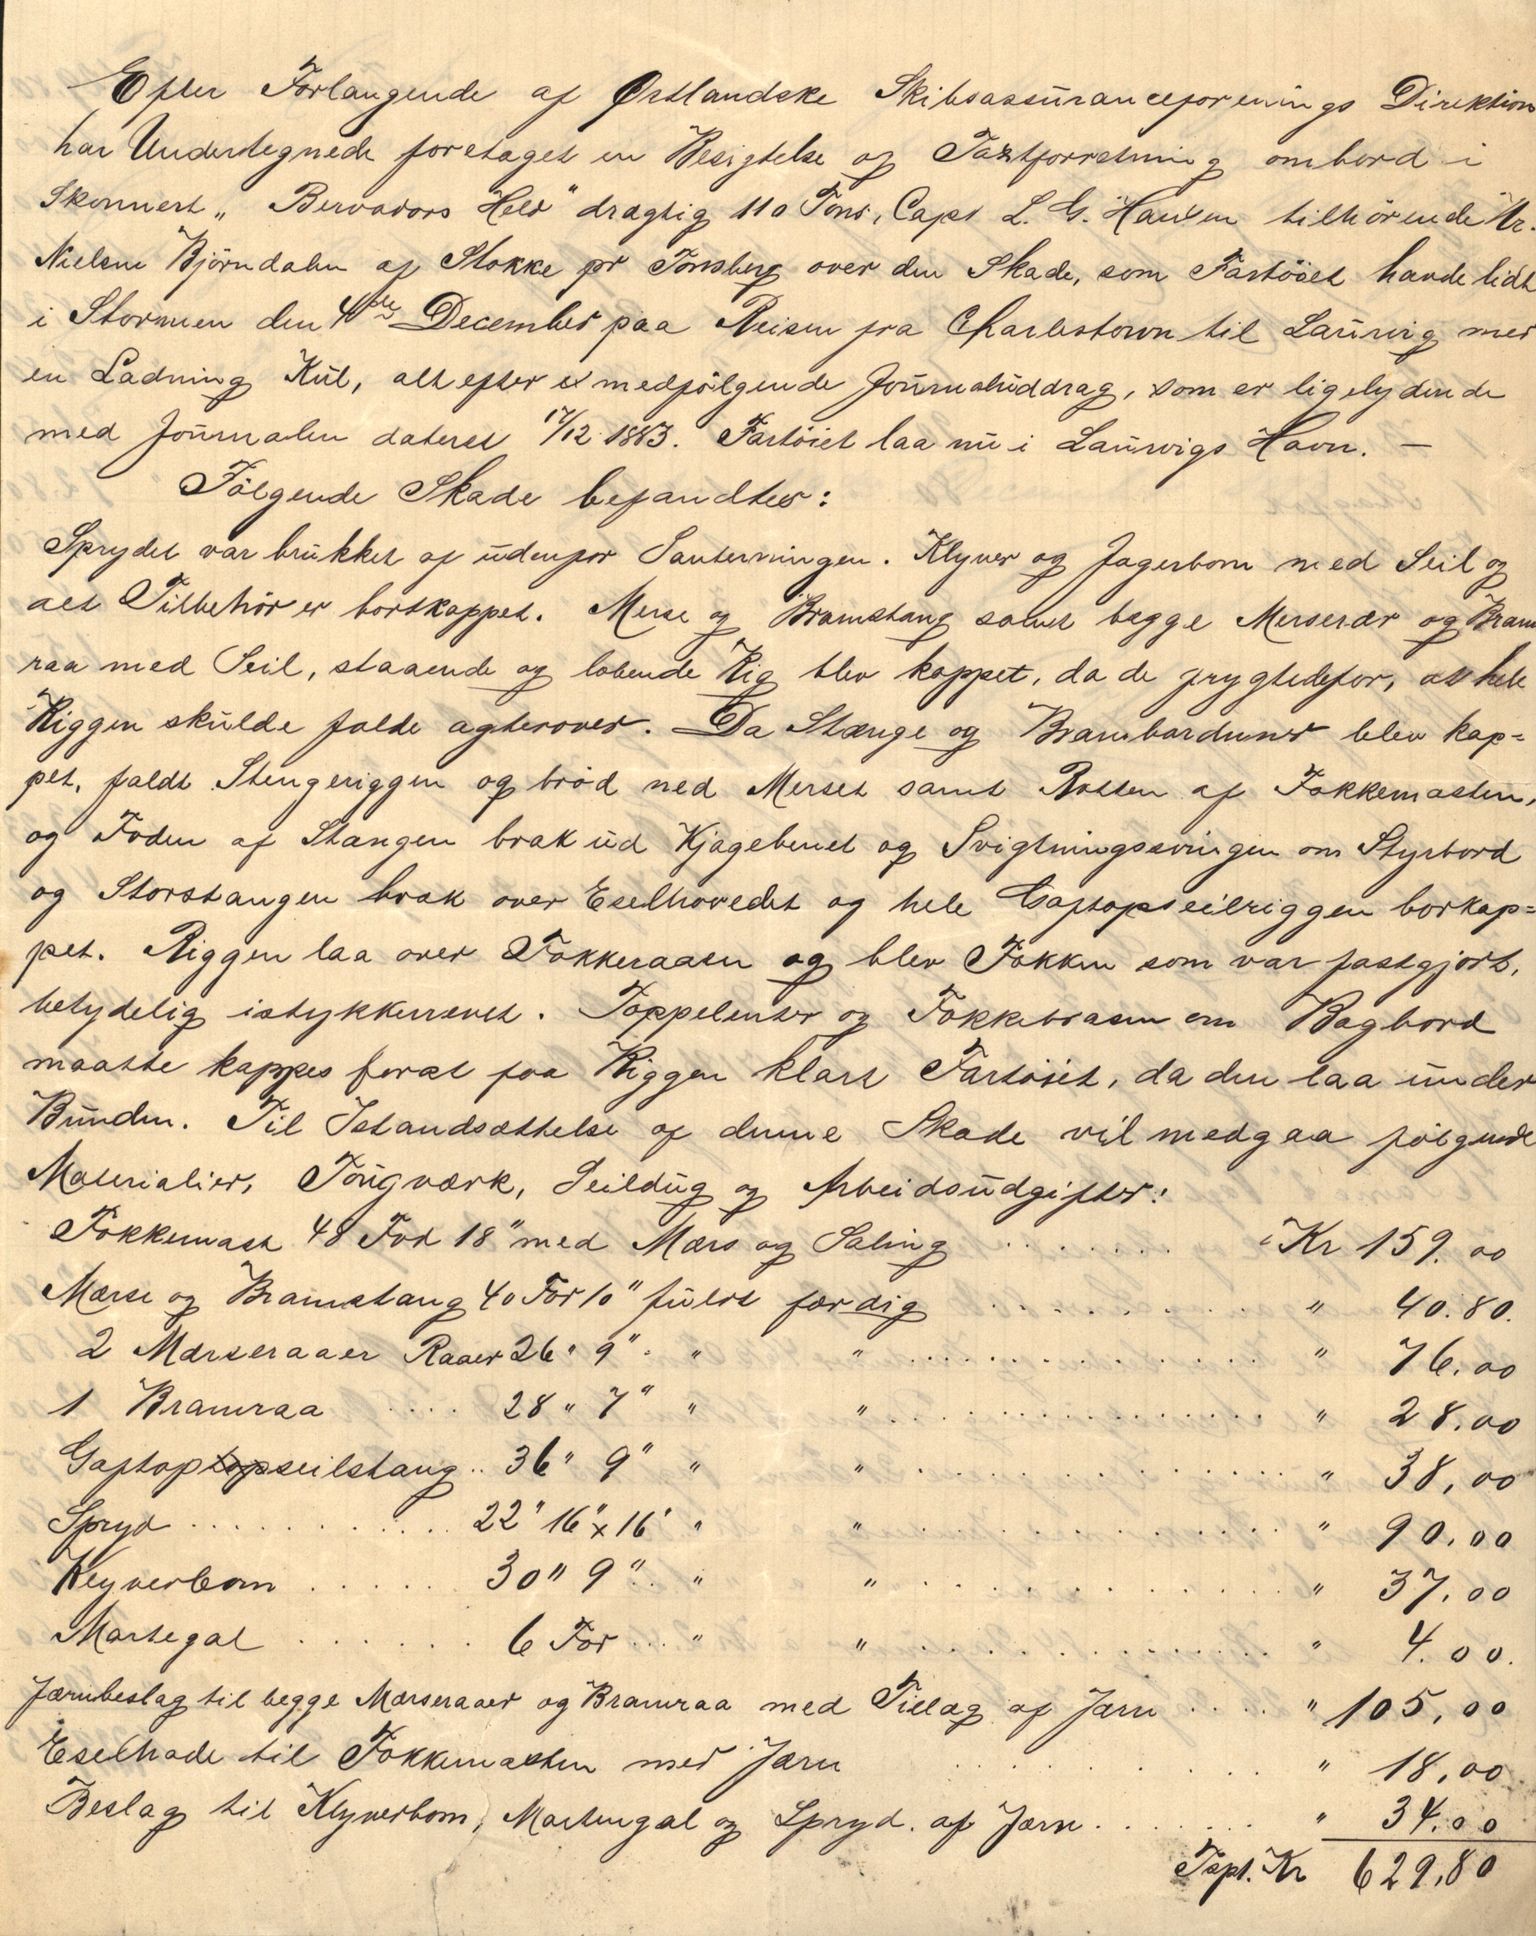 Efter Forlangende af Østlandske Skibsassuranceforenings Direktion
har Undertegnede foretaget en Besigtelse og Taxtforretning ombord i
Skonnert „Bervadors Held" drægtig 110 Tons, Capt L. G. Hansen tilhörende Hr.
Nielsen Björndalen af Stokke pr Tönsberg over den Skade, som Fartöiet havde lidt
i Stormen den 4de December paa Reisen fra Charlestown til Laurvig med
en Ladning Kul, alt efter medfölgende Journaluddrag, som er ligelydende
med Journalen dateret 17/12 1883. Fartöiet laa nu i Laurvigs Havn. —
Fölgende Skade befandtes:
Sprydet var brukket af udenfor Santervningen. Klyver og Jagerbom med Seil og
alt Tilbehör er bortkappet. Merse og Bramstang samt begge Merserær og Bram
raa med Seil, staaende og löbende Rig blev kappet, da de frygtedefor, at hele
Riggen skulde falde agterover. Da Stænge og Brambarduner blev kap=
pet, faldt Stengeriggen og bröd ned Merset samt Rotten af Fokkemasten,
og Foden af Stangen brak ud Kjagebenet og Svigtningssvingen om Styrbord
og Storstangen brak over Eselhovedet og hele Gaftopseilriggen borkap=
pet. Riggen laa over Fokkeraaen og blev Fokken som var fastgjort,
betydelig istykkerrevet. Toppelenter og Fokkebrasen om Bagbord
maatte kappes foræt faa Riggen klart Fartöiet, da den laa under
Bunden. Til Istandsættelse af denne Skade vil medgaa fölgende
Materialier, Tougværk, Seildug og Arbeidsudgifter:
Fokkemast 48 Fod 18" med Mærs og Saling . . . . . . . Kr 159.00
Mærse og Bramstang 40 Fod 10" fuldt færdig . . . . . . . " 40.80.
2 Mærseraaer Raaer 26 " 9" " " . . . . . . . " 76.00
1 Bramraa . . . . 28 " 7" " " . . . . . . . " 28.00
Gaftoptopseilstang .. 36 " 9" " " . . . . . . . " 38,00
Spryd . . . . . . . 22" 16" x 16" " " . . . . . . . " 90.00
Klyverbom . . . . . . 30 " 9" .. " " . . . . . . . " 37.00
Martegal . . . . . . 6 Fod ... " " . . . . . . . " 4.00.
Jærnbeslag til begge Mærseraaer og Bramraa med Tillæg af Jærn . . . . " 105,00
Eselhode til Fokkemasten med Jærn . . . . . . . " 18,00
Beslag til Klyverbom, Martingal og Spryd. af Jærn . . . . . . " 34.00
Tspt. Kr 629,80